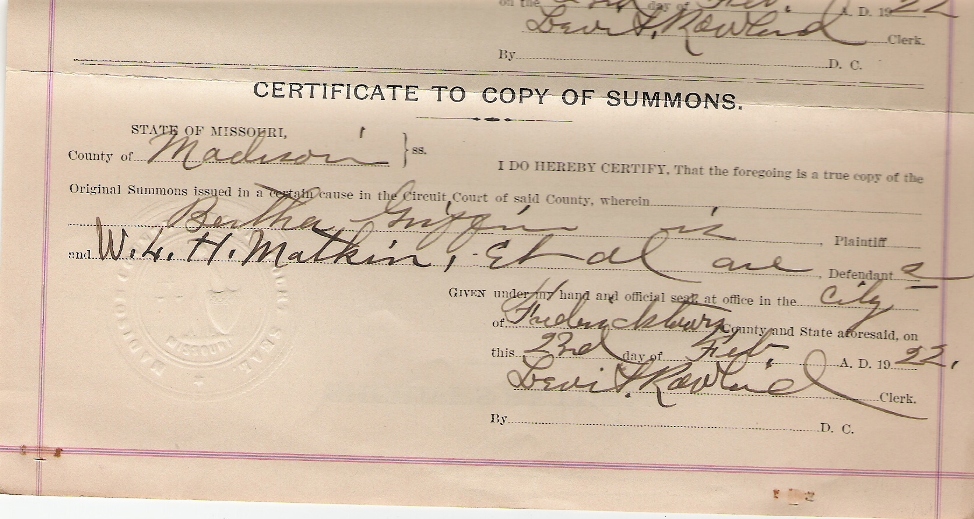 on the 23rd day of Feb. A. D. 1922
Levi S. Rowland Clerk.
By D. C.
CERTIFICATE TO COPY OF SUMMONS.
STATE OF MISSOURI,
County of Madison } ss.
I DO HEREBY CERTIFY, That the foregoing is a true copy of the
Original Summons issued in a certain cause in the Circuit Court of said County, wherein
Bertha Griffin is , Plaintiff
and W. L. H. Matkin, Et al are , Defendant s
GIVEN under my hand and official seal at office in the City
of Fredricktown County and State aforesaid, on
this 23rd day of Feb. A. D. 1922.
Levi S. Rowland Clerk.
By D. C.
MISSOURI